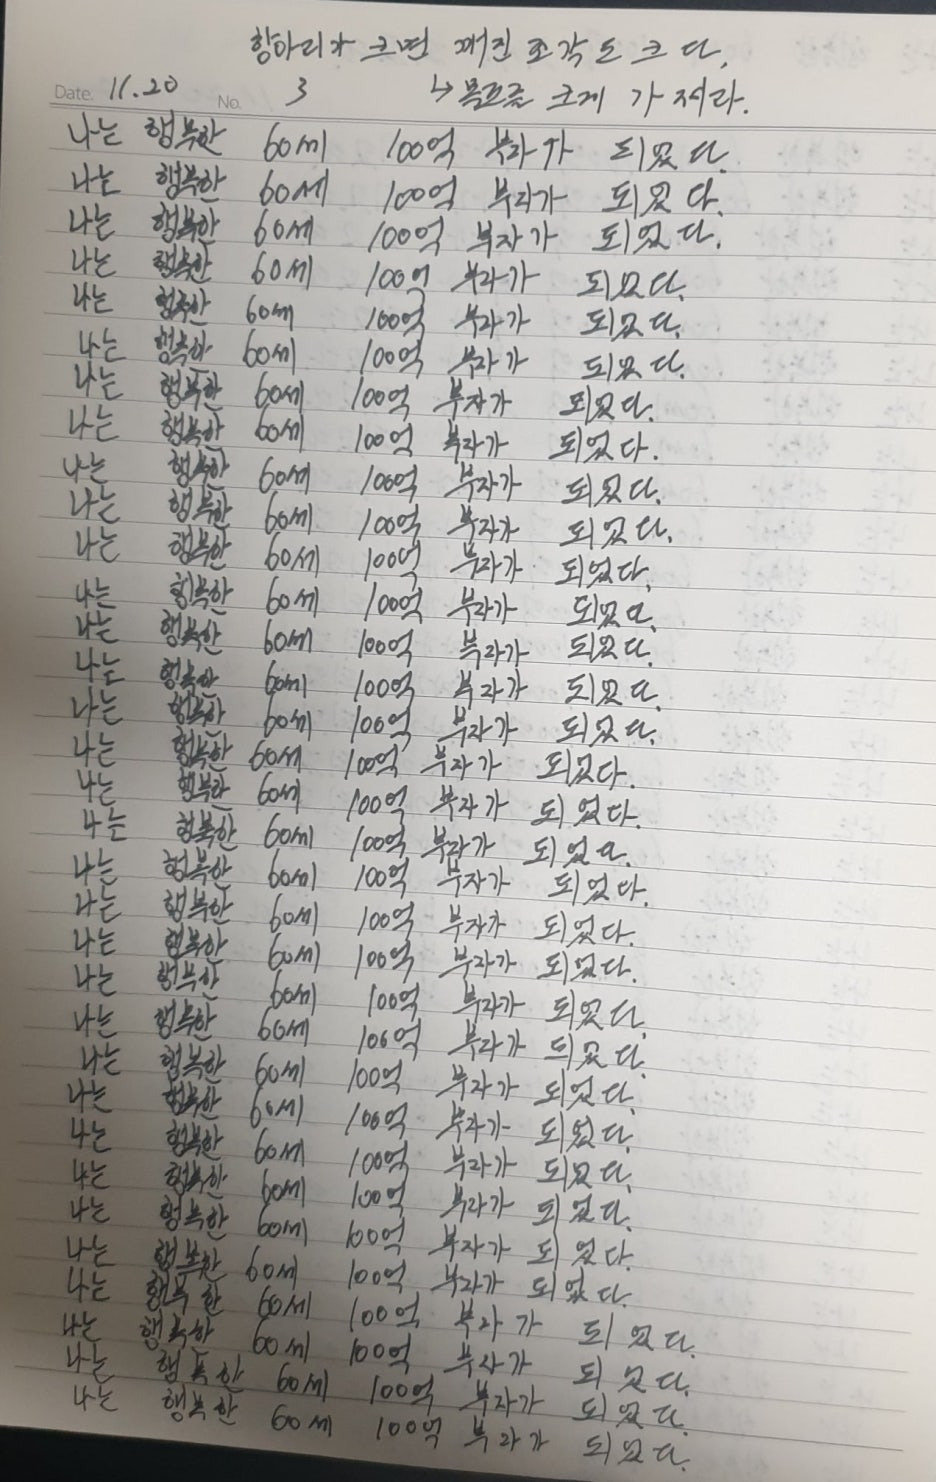 항아리가 크면 깨진 조각도 크다.
Date. 11.20 No. 3 ↳ 목표를 크게 가져라.
나는 행복한 60세 100억 부자가 되었다.
나는 행복한 60세 100억 부자가 되었다.
나는 행복한 60세 100억 부자가 되었다.
나는 행복한 60세 100억 부자가 되었다.
나는 행복한 60세 100억 부자가 되었다.
나는 행복한 60세 100억 부자가 되었다.
나는 행복한 60세 100억 부자가 되었다.
나는 행복한 60세 100억 부자가 되었다.
나는 행복한 60세 100억 부자가 되었다.
나는 행복한 60세 100억 부자가 되었다.
나는 행복한 60세 100억 부자가 되었다.
나는 행복한 60세 100억 부자가 되었다.
나는 행복한 60세 100억 부자가 되었다.
나는 행복한 60세 100억 부자가 되었다.
나는 행복한 60세 100억 부자가 되었다.
나는 행복한 60세 100억 부자가 되었다.
나는 행복한 60세 100억 부자가 되었다.
나는 행복한 60세 100억 부자가 되었다.
나는 행복한 60세 100억 부자가 되었다.
나는 행복한 60세 100억 부자가 되었다.
나는 행복한 60세 100억 부자가 되었다.
나는 행복한 60세 100억 부자가 되었다.
나는 행복한 60세 100억 부자가 되었다.
나는 행복한 60세 100억 부자가 되었다.
나는 행복한 60세 100억 부자가 되었다.
나는 행복한 60세 100억 부자가 되었다.
나는 행복한 60세 100억 부자가 되었다.
나는 행복한 60세 100억 부자가 되었다.
나는 행복한 60세 100억 부자가 되었다.
나는 행복한 60세 100억 부자가 되었다.
나는 행복한 60세 100억 부자가 되었다.
나는 행복한 60세 100억 부자가 되었다.
나는 행복한 60세 100억 부자가 되었다.